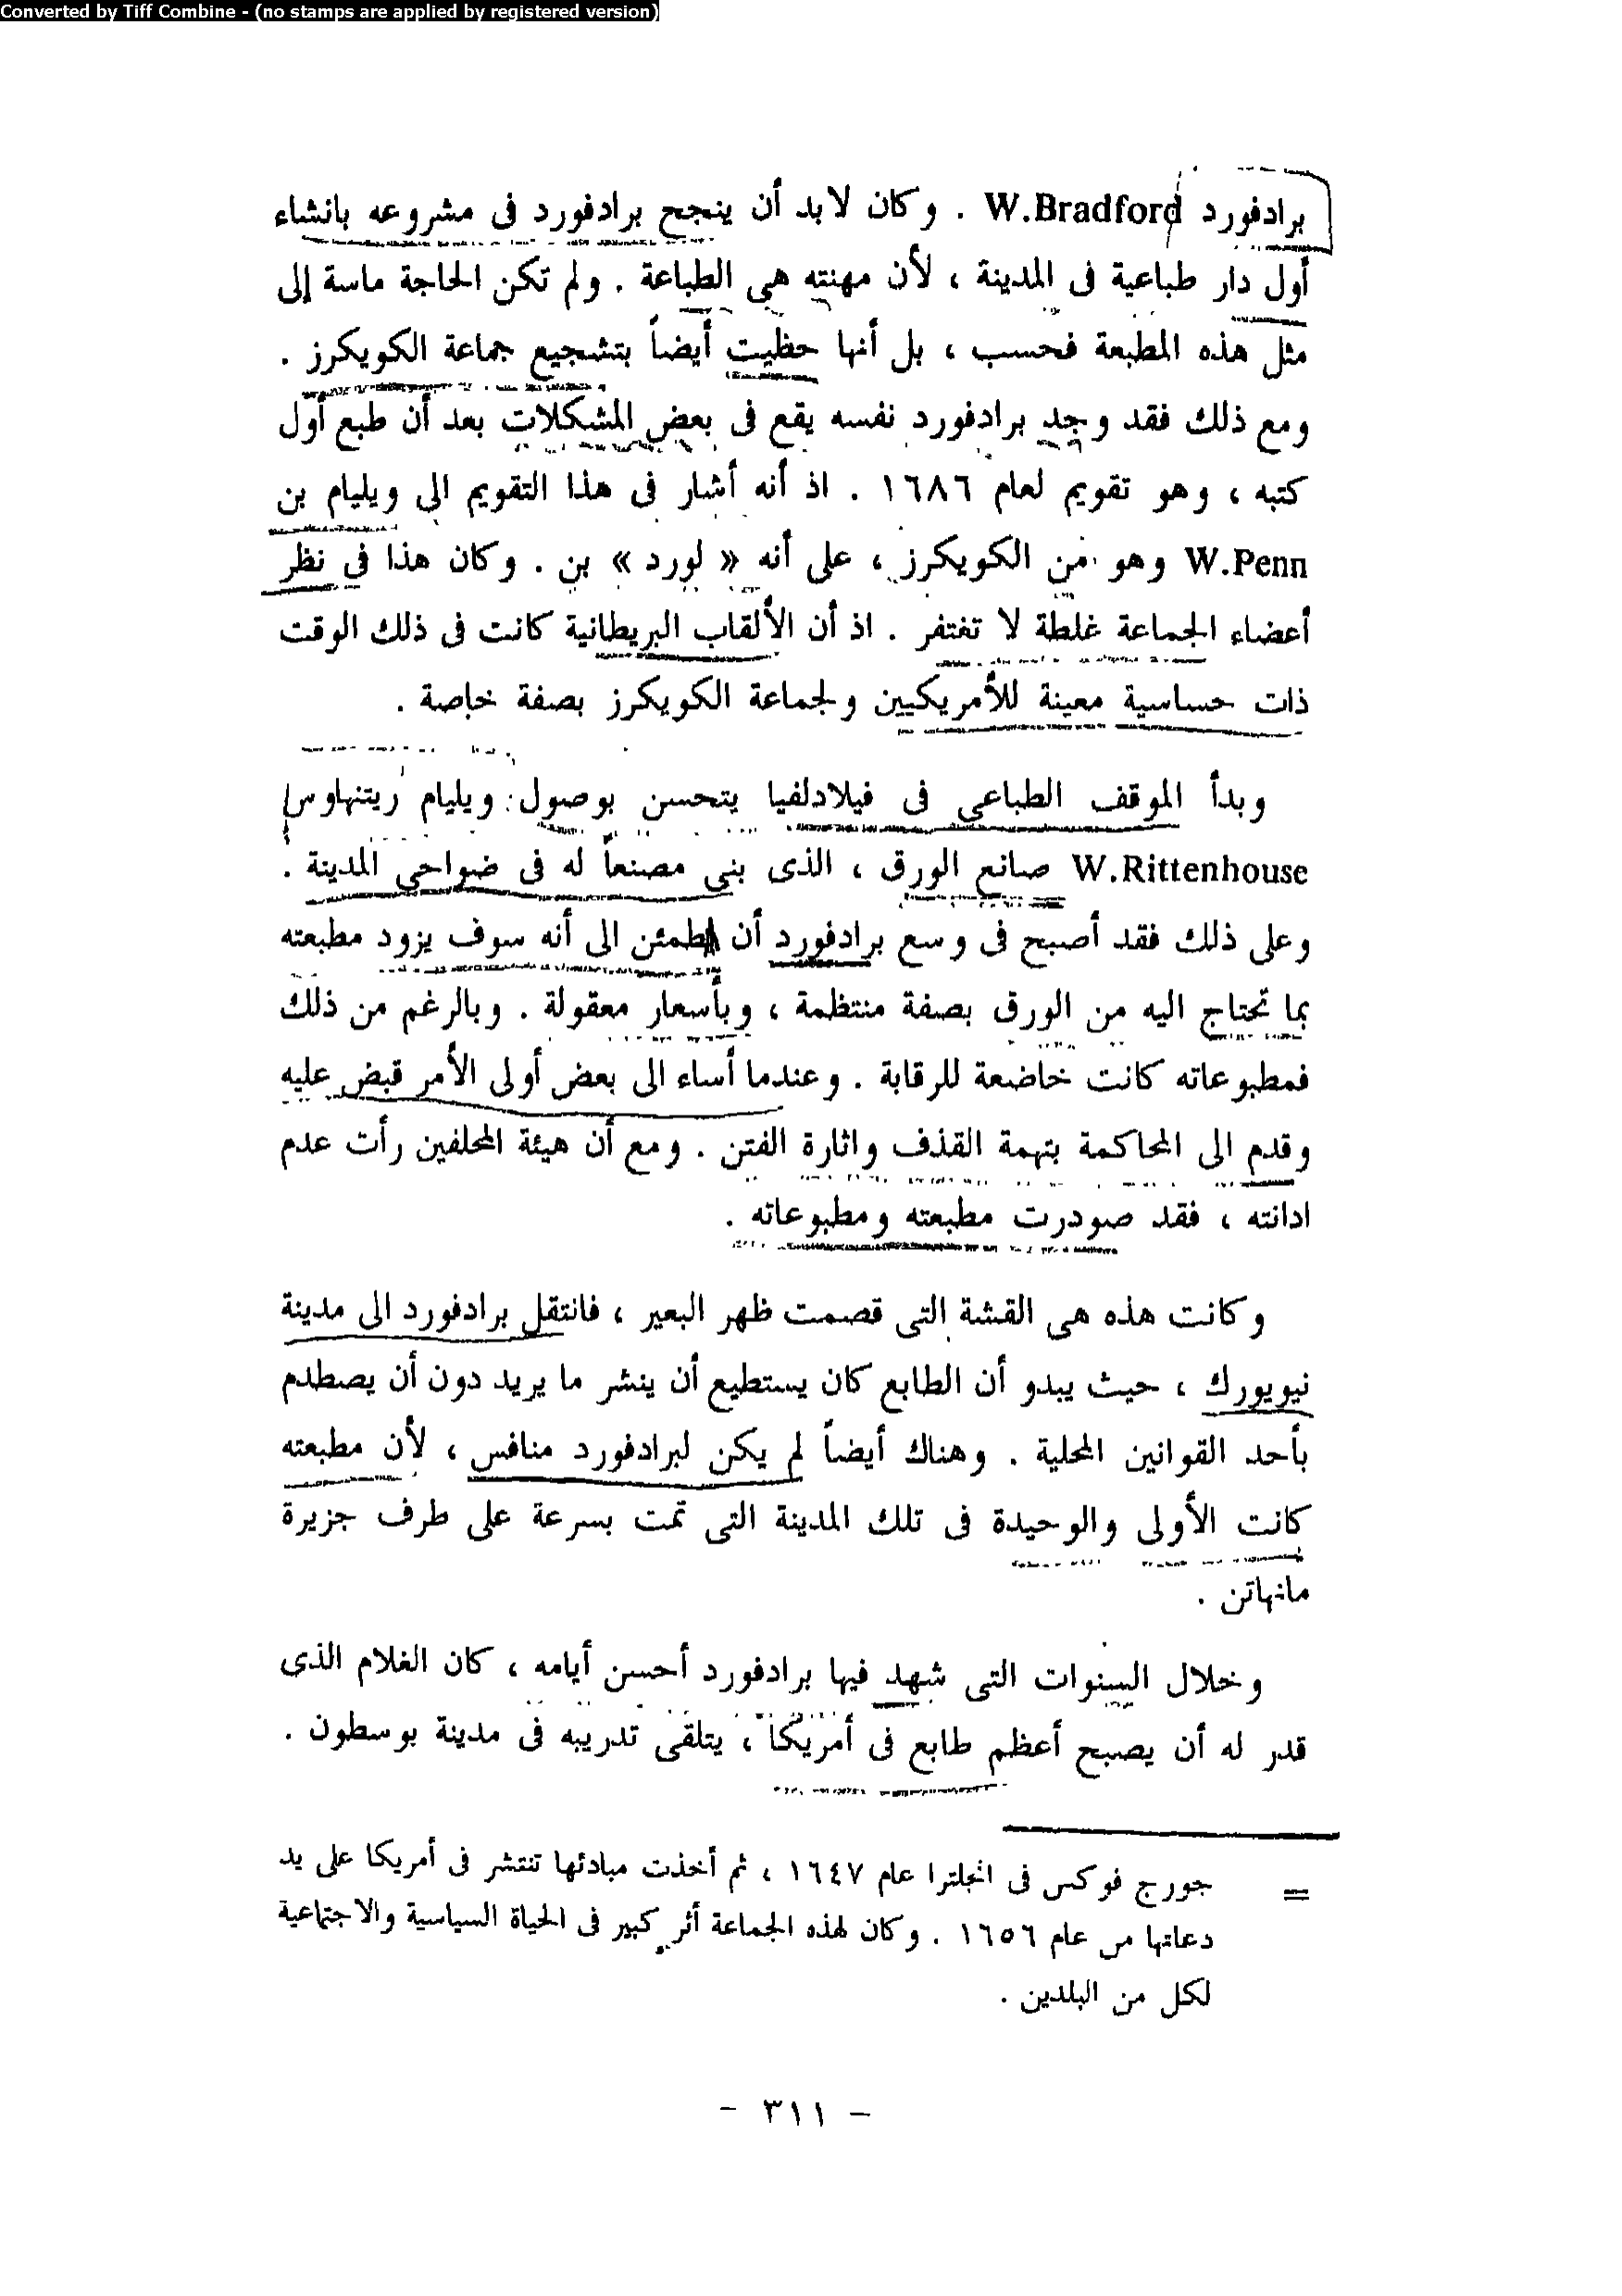 Converted by Tiff Combine - (no stamps are applied by registered version)
برادفورد W.Bradford . وكان لابد أن ينجح برادفورد فى مشروعه بانشاء
أول دار طباعية فى المدينة ، لأن مهنته هى الطباعة . ولم تكن الحاجة ماسة إلى
مثل هذه المطبعة فحسب ، بل أنها حظيت أيضاً بتشجيع جماعة الكويكرز .
ومع ذلك فقد وجد برادفورد نفسه يقع فى بعض المشكلات بعد أن طبع أول
كتبه ، وهو تقويم لعام ١٦٨٦ . اذ أنه أشار فى هذا التقويم الى ويليام بن
W.Penn وهو من الكويكرز ، على أنه « لورد » بن . وكان هذا فى نظر
أعضاء الجماعة غلطة لا تغتفر . اذ أن الألقاب البريطانية كانت فى ذلك الوقت
ذات حساسية معينة للأمريكيين ولجماعة الكويكرز بصفة خاصة .
وبدأ الموقف الطباعى فى فيلادلفيا يتحسن بوصول ويليام ريتنهاوس
W.Rittenhouse صانع الورق ، الذى بنى مصنعاً له فى ضواحى المدينة .
وعلى ذلك فقد أصبح فى وسع برادفورد أن يطمئن الى أنه سوف يزود مطبعته
بما تحتاج اليه من الورق بصفة منتظمة ، وبأسعار معقولة . وبالرغم من ذلك
فمطبوعاته كانت خاضعة للرقابة . وعندما أساء الى بعض أولى الأمر قبض عليه
وقدم الى المحاكمة بتهمة القذف واثارة الفتن . ومع أن هيئة المحلفين رأت عدم
ادانته ، فقد صودرت مطبعته ومطبوعاته .
وكانت هذه هى القشة التى قصمت ظهر البعير ، فانتقل برادفورد الى مدينة
نيويورك ، حيث يبدو أن الطابع كان يستطيع أن ينشر ما يريد دون أن يصطدم
بأحد القوانين المحلية . وهناك أيضاً لم يكن لبرادفورد منافس ، لأن مطبعته
كانت الأولى والوحيدة فى تلك المدينة التى تمت بسرعة على طرف جزيرة
مانهاتن .
وخلال السنوات التى شهد فيها برادفورد أحسن أيامه ، كان الغلام الذى
قدر له أن يصبح أعظم طابع فى أمريكا ، يتلقى تدريبه فى مدينة بوسطون .
= جورج فوكس فى انجلترا عام ١٦٤٧ ، ثم أخذت مبادئها تنتشر فى أمريكا على يد
دعاتها من عام ١٦٥٦ . وكان لهذه الجماعة أثر كبير فى الحياة السياسية والاجتماعية
لكل من البلدين .
- ٣١١ -